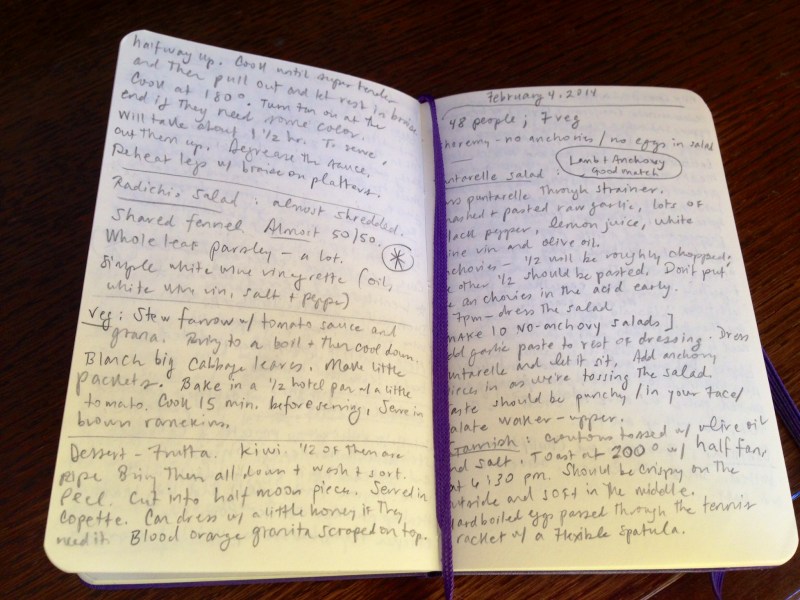 halfway up. Cook until super tender
and then pull out and let rest in braise.
Cook at 180°. Turn fan on at the
end if they need some color.
Will take about 1 1/2 hr. To serve,
cut them up. Degrease the sauce.
Reheat legs w/ braise on platters.
Radichio Salad : almost shredded.
Shared fennel Almost 50/50.
Whole leaf parsley – a lot.
Simple white wine vinegrette (oil,
white wine vin, salt + pepper)
Veg : Stew farrow w/ tomato sauce and
grana. Bring to a boil + then cool down.
Blanch big cabbage leaves. Make little
packets. Bake in a 1/2 hotel pan w/ a little
tomato. Cook 15 min. before serving. Serve in
brown ramekins.
Dessert – Frutta. Kiwi. 1/2 of them are
ripe. Bring them all down + wash + sort.
Peel. Cut into half moon pieces. Served in
copette. Can dress w/ a little honey if they
need it. Blood orange granita scraped on top.
February 4, 2014
48 people; 7 veg
heremy – no anchovies / no eggs in salad
Lamb + Anchovy
Good match
untarelle salad :
ss puntarelle through strainer.
ashed + pasted raw garlic, lots of
lack pepper, lemon juice, white
ine vin and olive oil.
nchovies – 1/2 will be roughly chopped;
e other 1/2 should be pasted. Don't put
e anchovies in the acid early.
7pm – dress the salad
MAKE 10 NO-anchovy salads]
dd garlic paste to rest of dressing. Dress
untarelle and let it sit. Add anchovy
pieces in as we're tossing the salad.
aste should be punchy / in your face /
alate waker-upper.
Garnish : croutons tossed w/ olive oil
nd salt. Toast at 200° w/ half fan,
at 6:30 pm. Should be crispy on the
utside and soft in the middle.
ardboiled eggs passed through the tennis
racket w/ a flexible spatula.